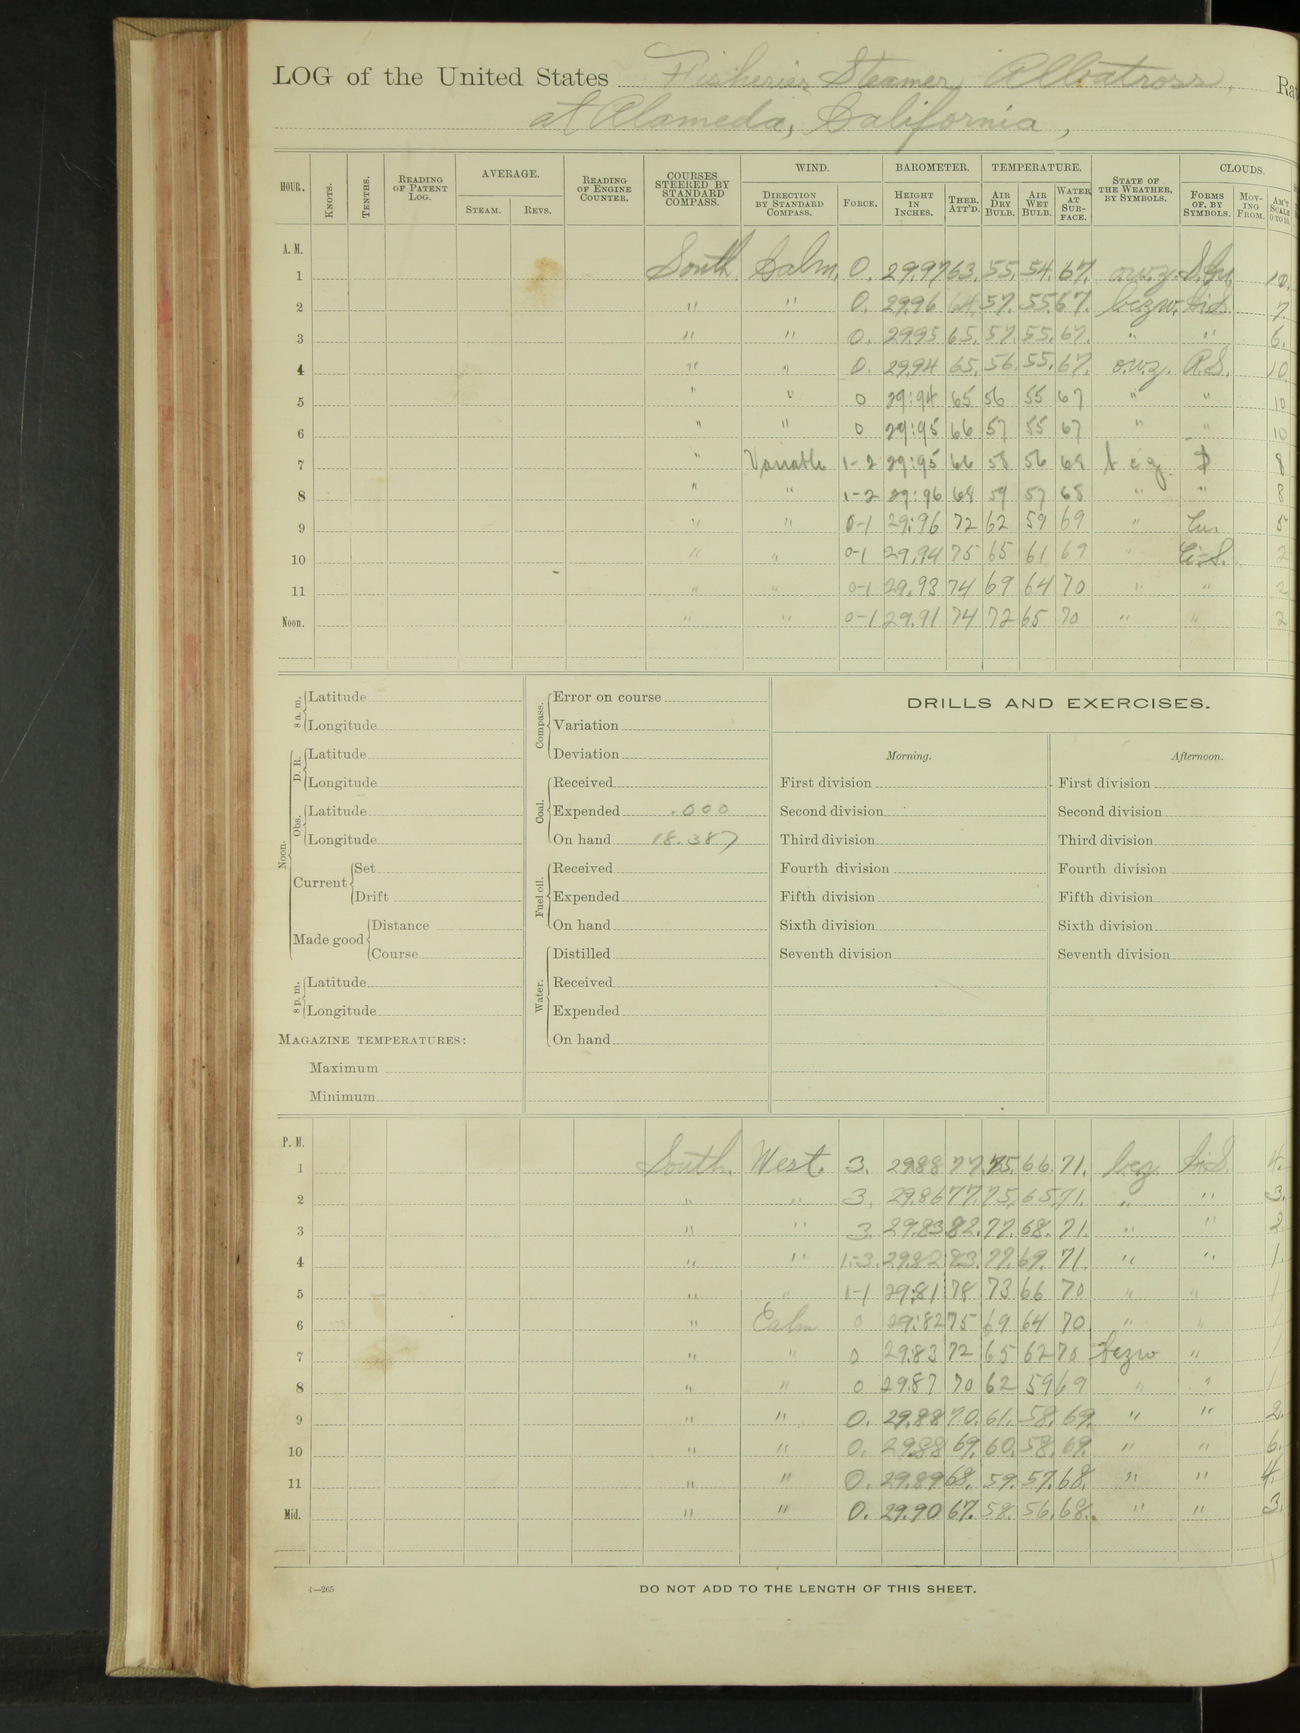 LOG of the United States Fisheries Steamer Albatross, Ra
at Alameda, California,
HOUR. KNOTS. TENTHS. READING OF PATENT LOG. AVERAGE. STEAM. REVS. READING OF ENGINE COUNTER. COURSES STEERED BY STANDARD COMPASS. WIND. DIRECTION BY STANDARD COMPASS. FORCE. BAROMETER. HEIGHT IN INCHES. THER. ATT'D. TEMPERATURE. AIR DRY BULB. AIR WET BULB. WATER AT SURFACE. STATE OF THE WEATHER, BY SYMBOLS. CLOUDS. FORMS OF, BY SYMBOLS. MOVING FROM. AM'T SCALE 0 TO 10.
A. M.
1 South. Calm. 0. 29.97 63. 55. 54. 67. o.w.z. 10.
2 " " 0. 29.96 64. 57. 55. 67. bczw. Ci.S. 7.
3 " " 0. 29.95 65. 57. 55. 67. " " 6.
4 " " 0. 29.94 65. 56. 55. 67. o.w.z. A.S. 10.
5 " " 0 29:94 65 56 55 67 " " 10
6 " " 0 29:95 66 57 55 67 " " 10
7 " Variable 1-2 29:95 66 58 56 68 b c z 8
8 " " 1-2 29:96 68 59 57 68 " " 8
9 " " 0-1 29:96 72 62 59 69 " Cu. 5
10 " " 0-1 29.94 75 65 61 69 " Ci-S. 2
11 " " 0-1 29.93 74 69 64 70 " " 2
Noon. " " 0-1 29.91 74 72 65 70 " " 2
8 a. m. Latitude
Longitude
Noon. D. R. Latitude
Longitude
Obs. Latitude
Longitude
Current Set
Drift
Made good Distance
Course
8 p. m. Latitude
Longitude
MAGAZINE TEMPERATURES:
Maximum
Minimum
Compass. Error on course
Variation
Deviation
Coal. Received
Expended .000
On hand 18.387
Fuel oil. Received
Expended
On hand
Water. Distilled
Received
Expended
On hand
DRILLS AND EXERCISES.
Morning. Afternoon.
First division First division
Second division Second division
Third division Third division
Fourth division Fourth division
Fifth division Fifth division
Sixth division Sixth division
Seventh division Seventh division
P. M.
1 South. West. 3. 29.88 77. 75. 66. 71. bcz Ci.S. 4.
2 " " 3. 29.86 77. 75. 65. 71. " " 3.
3 " " 3. 29.83 82. 77. 68. 71. " " 2
4 " " 1-3. 29.82 83. 77. 69. 71. " " 1.
5 " " 1-1 29:81 78 73 66 70 " " 1
6 " Calm 0 29:82 75 69 64 70 " " 1
7 " " 0 29:83 72 65 62 70 bczw " 1
8 " " 0 29.87 70 62 59 69 " " 1
9 " " 0. 29.88 70. 61. 58. 69. " " 2.
10 " " 0. 29.88 69. 60. 58. 69. " " 6.
11 " " 0. 29.89 68. 59. 57. 68. " " 4.
Mid. " " 0. 29.90 67. 58. 56. 68. " " 3.
DO NOT ADD TO THE LENGTH OF THIS SHEET.